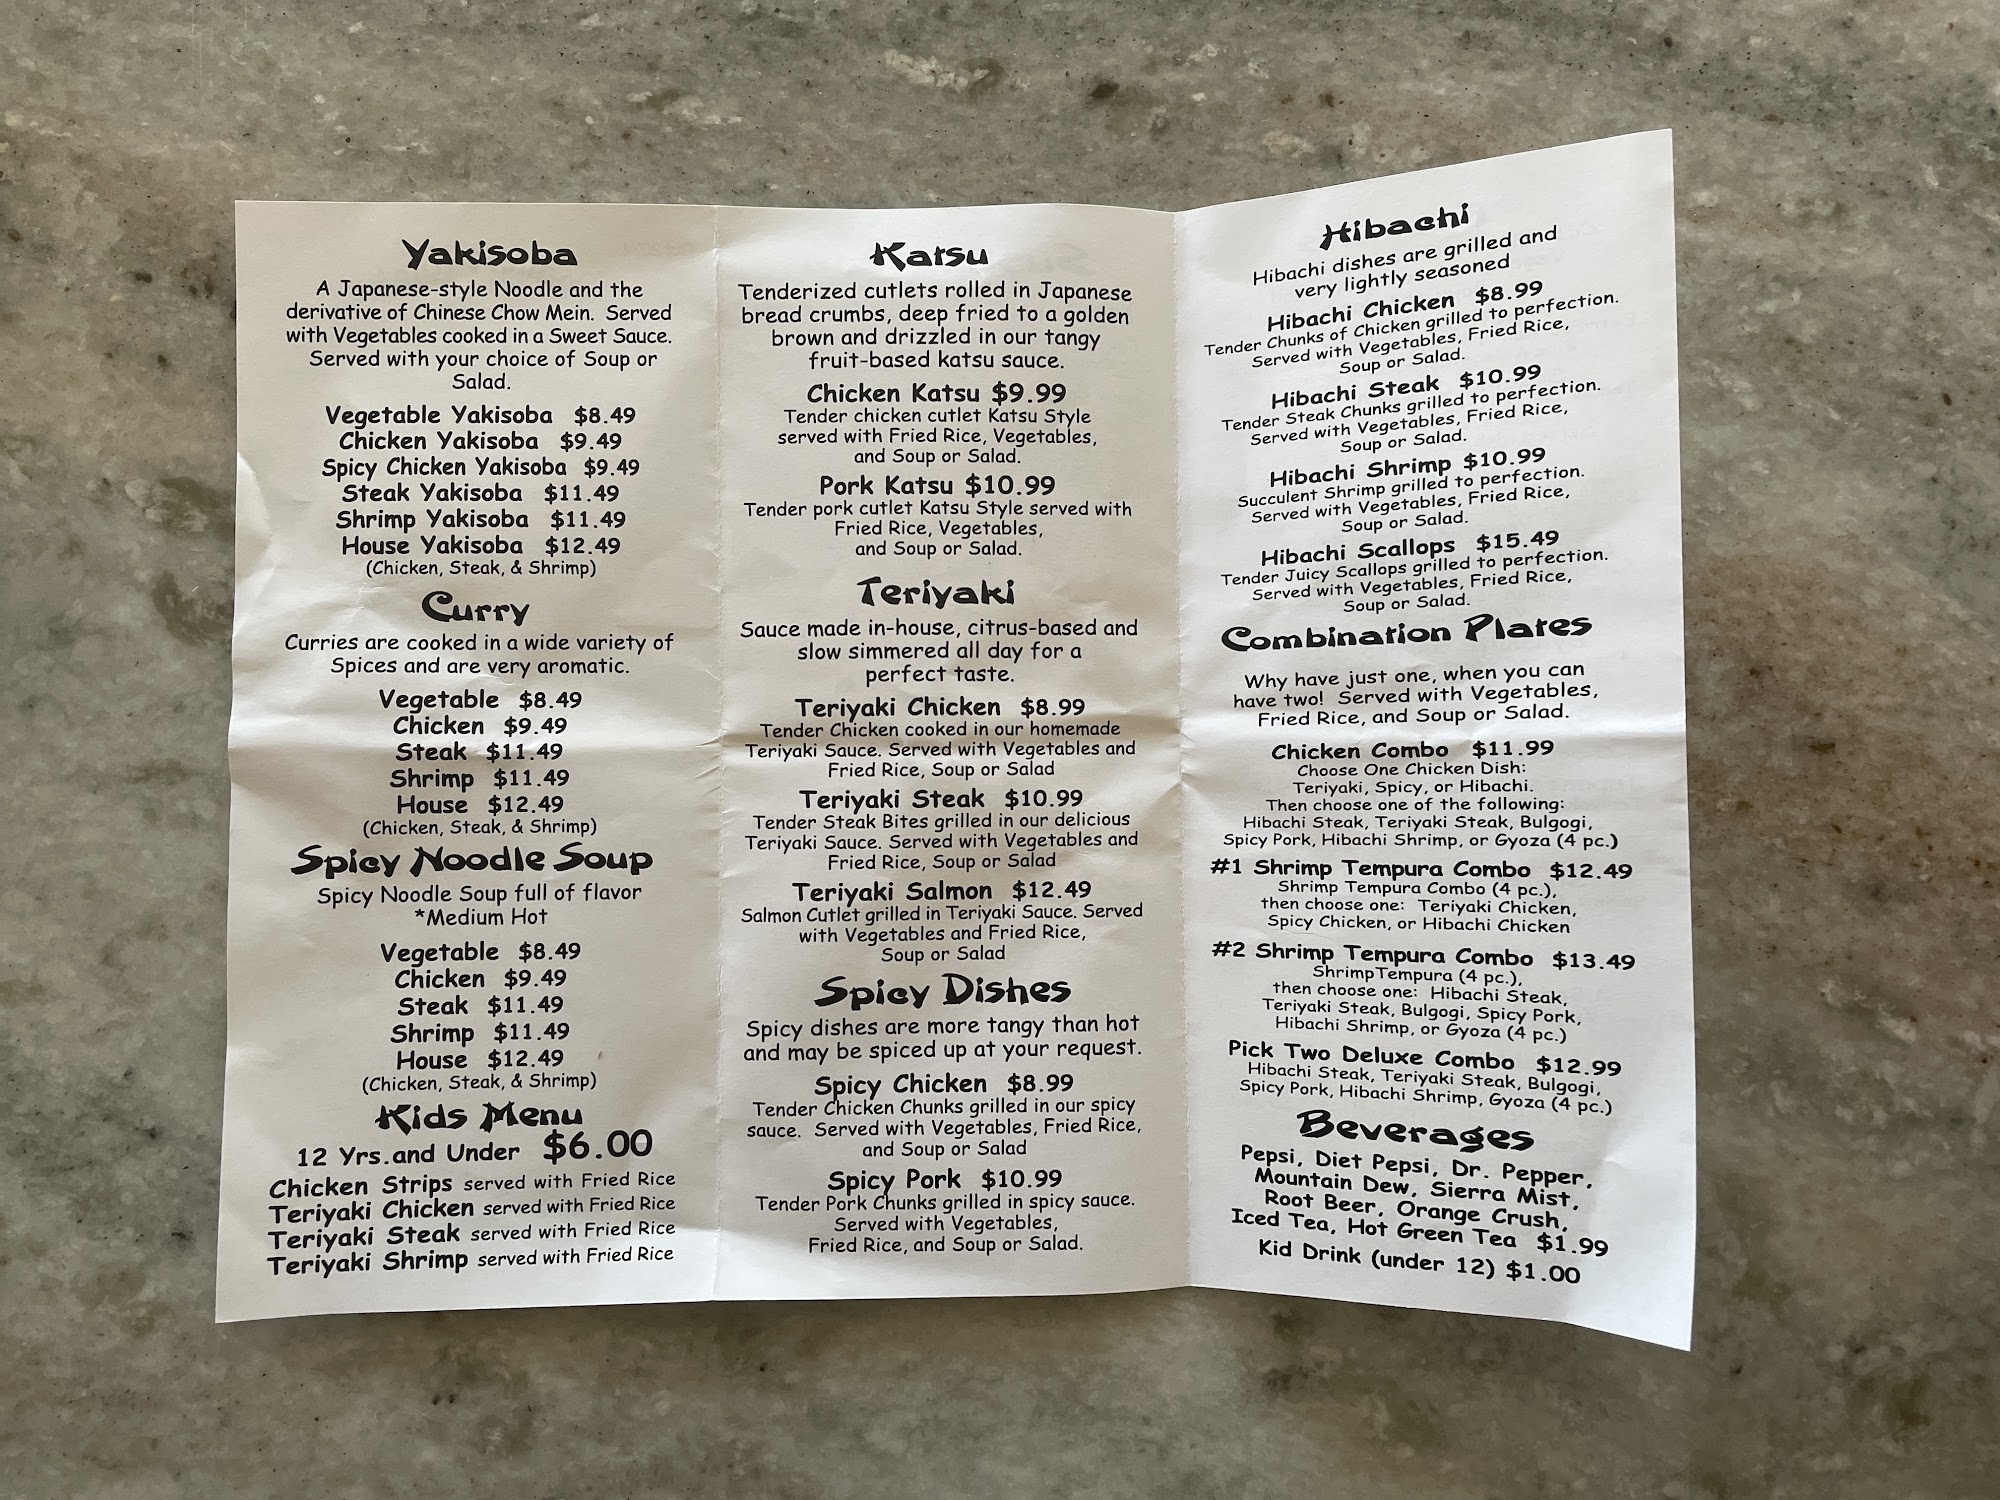 Yakisoba
A Japanese-style Noodle and the
derivative of Chinese Chow Mein. Served
with Vegetables cooked in a Sweet Sauce.
Served with your choice of Soup or
Salad.
Vegetable Yakisoba $8.49
Chicken Yakisoba $9.49
Spicy Chicken Yakisoba $9.49
Steak Yakisoba $11.49
Shrimp Yakisoba $11.49
House Yakisoba $12.49
(Chicken, Steak, & Shrimp)
Curry
Curries are cooked in a wide variety of
Spices and are very aromatic.
Vegetable $8.49
Chicken $9.49
Steak $11.49
Shrimp $11.49
House $12.49
(Chicken, Steak, & Shrimp)
Spicy Noodle Soup
Spicy Noodle Soup full of flavor
*Medium Hot
Vegetable $8.49
Chicken $9.49
Steak $11.49
Shrimp $11.49
House $12.49
(Chicken, Steak, & Shrimp)
Kids Menu
12 Yrs.and Under $6.00
Chicken Strips served with Fried Rice
Teriyaki Chicken served with Fried Rice
Teriyaki Steak served with Fried Rice
Teriyaki Shrimp served with Fried Rice
Katsu
Tenderized cutlets rolled in Japanese
bread crumbs, deep fried to a golden
brown and drizzled in our tangy
fruit-based katsu sauce.
Chicken Katsu $9.99
Tender chicken cutlet Katsu Style
served with Fried Rice, Vegetables,
and Soup or Salad.
Pork Katsu $10.99
Tender pork cutlet Katsu Style served with
Fried Rice, Vegetables,
and Soup or Salad.
Teriyaki
Sauce made in-house, citrus-based and
slow simmered all day for a
perfect taste.
Teriyaki Chicken $8.99
Tender Chicken cooked in our homemade
Teriyaki Sauce. Served with Vegetables and
Fried Rice, Soup or Salad
Teriyaki Steak $10.99
Tender Steak Bites grilled in our delicious
Teriyaki Sauce. Served with Vegetables and
Fried Rice, Soup or Salad
Teriyaki Salmon $12.49
Salmon Cutlet grilled in Teriyaki Sauce. Served
with Vegetables and Fried Rice,
Soup or Salad
Spicy Dishes
Spicy dishes are more tangy than hot
and may be spiced up at your request.
Spicy Chicken $8.99
Tender Chicken Chunks grilled in our spicy
sauce. Served with Vegetables, Fried Rice,
and Soup or Salad
Spicy Pork $10.99
Tender Pork Chunks grilled in spicy sauce.
Served with Vegetables,
Fried Rice, and Soup or Salad.
Hibachi
Hibachi dishes are grilled and
very lightly seasoned
Hibachi Chicken $8.99
Tender Chunks of Chicken grilled to perfection.
Served with Vegetables, Fried Rice,
Soup or Salad.
Hibachi Steak $10.99
Tender Steak Chunks grilled to perfection.
Served with Vegetables, Fried Rice,
Soup or Salad.
Hibachi Shrimp $10.99
Succulent Shrimp grilled to perfection.
Served with Vegetables, Fried Rice,
Soup or Salad.
Hibachi Scallops $15.49
Tender Juicy Scallops grilled to perfection.
Served with Vegetables, Fried Rice,
Soup or Salad.
Combination Plates
Why have just one, when you can
have two! Served with Vegetables,
Fried Rice, and Soup or Salad.
Chicken Combo $11.99
Choose One Chicken Dish:
Teriyaki, Spicy, or Hibachi.
Then choose one of the following:
Hibachi Steak, Teriyaki Steak, Bulgogi,
Spicy Pork, Hibachi Shrimp, or Gyoza (4 pc.)
#1 Shrimp Tempura Combo $12.49
Shrimp Tempura Combo (4 pc.),
then choose one: Teriyaki Chicken,
Spicy Chicken, or Hibachi Chicken
#2 Shrimp Tempura Combo $13.49
ShrimpTempura (4 pc.),
then choose one: Hibachi Steak,
Teriyaki Steak, Bulgogi, Spicy Pork,
Hibachi Shrimp, or Gyoza (4 pc.)
Pick Two Deluxe Combo $12.99
Hibachi Steak, Teriyaki Steak, Bulgogi,
Spicy Pork, Hibachi Shrimp, Gyoza (4 pc.)
Beverages
Pepsi, Diet Pepsi, Dr. Pepper,
Mountain Dew, Sierra Mist,
Root Beer, Orange Crush,
Iced Tea, Hot Green Tea $1.99
Kid Drink (under 12) $1.00